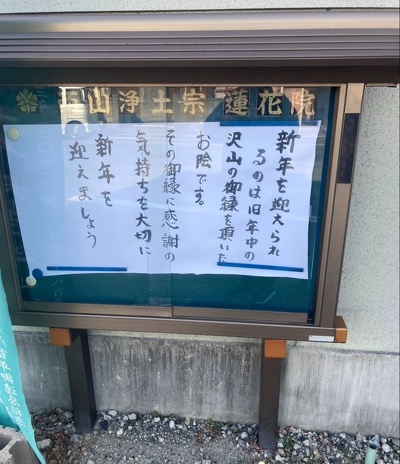 山浄土宗 蓮花院
新年を迎えられ
るのは旧年中の
沢山の御縁を頂いた
お陰です
その御縁に感謝の
気持ちを大切に
新年を
迎えましょう